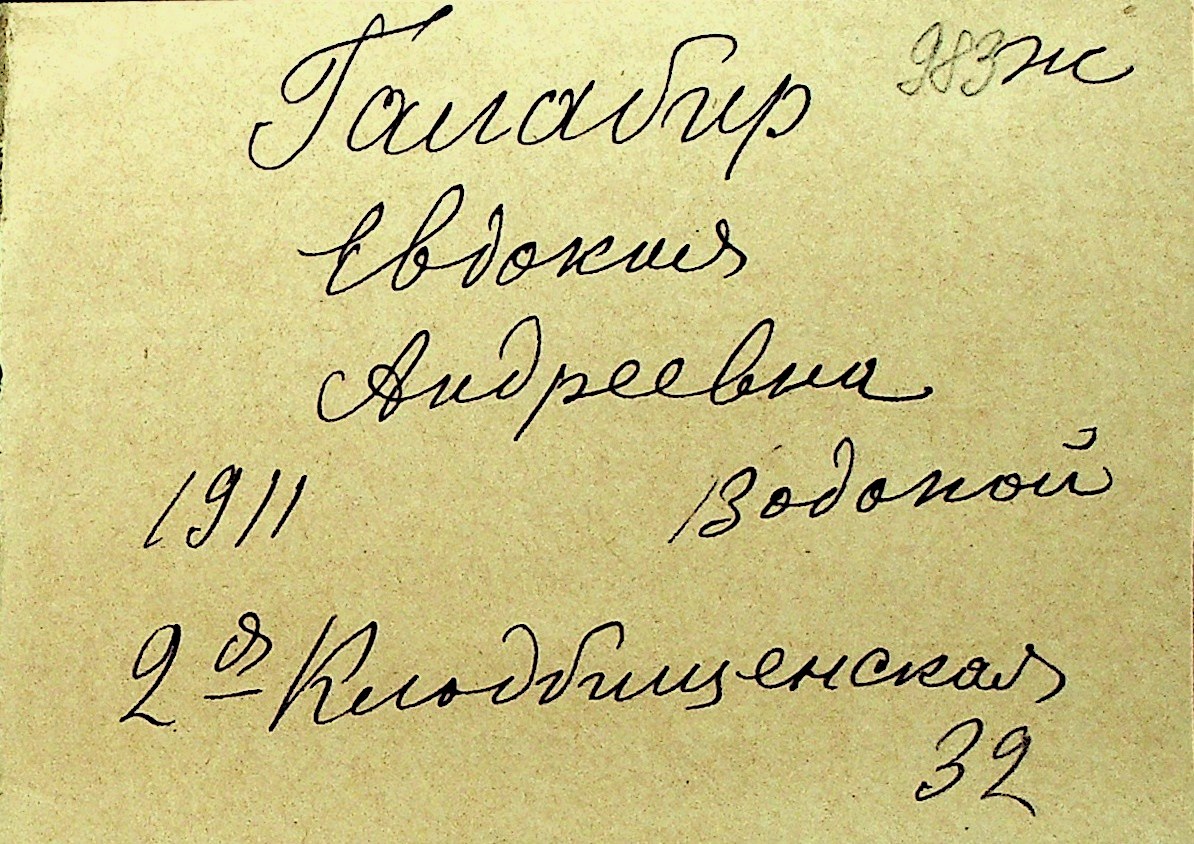 983ж
Галабир
Евдокия
Андреевна
1911 Водопой
2я Кладбищенская
32